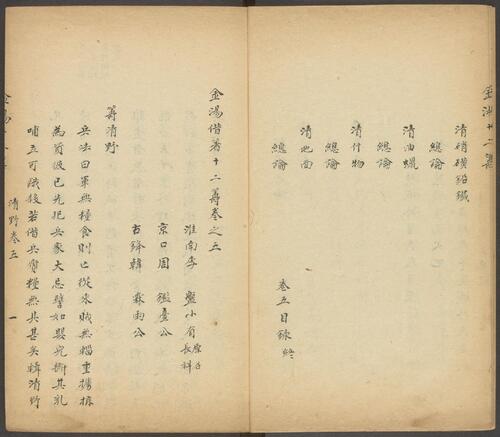 金湯十二籌
清硝磺鉛鐵
總論
清油蠟
總論
清什物
總論
清地面
總論
卷五目錄終
金湯借箸十二籌卷之五
淮南李 盤小有 原名長科
京口周 鑑臺公
古絳韓 霖雨公
籌清野
兵法曰軍無糧食則亡從來賊無輜重擄掠
為資彼已先犯兵家大忌譬如嬰兒斷其乳
哺立可餓殺若借兵齎糧無其甚矣輯清野
清野卷五 一